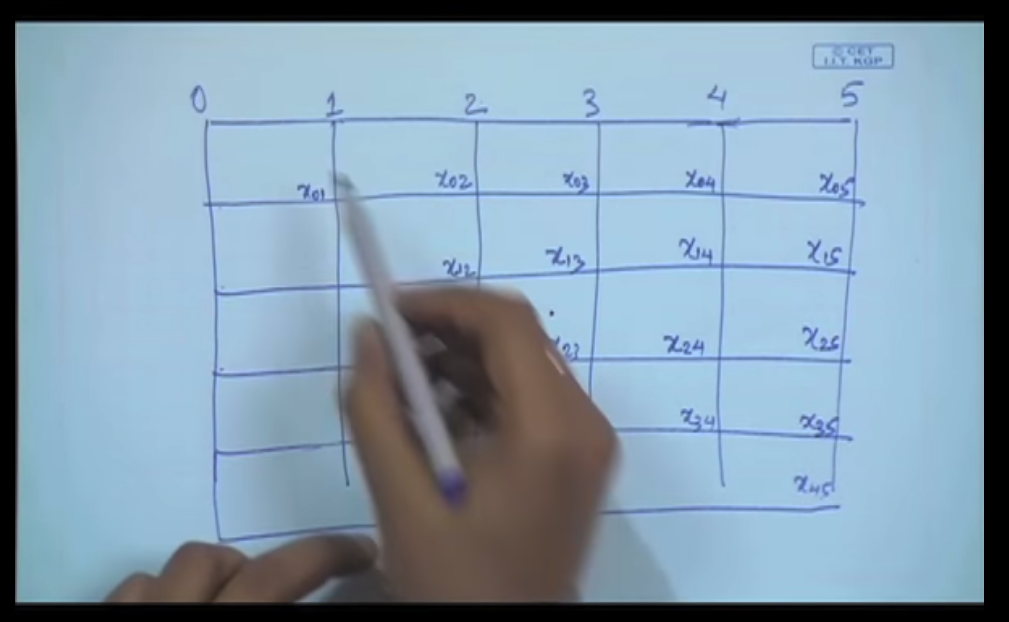 © CET
I.I.T. KGP
0 1 2 3 4 5
x01 x02 x03 x04 x05
x12 x13 x14 x15
x23 x24 x25
x34 x35
x45